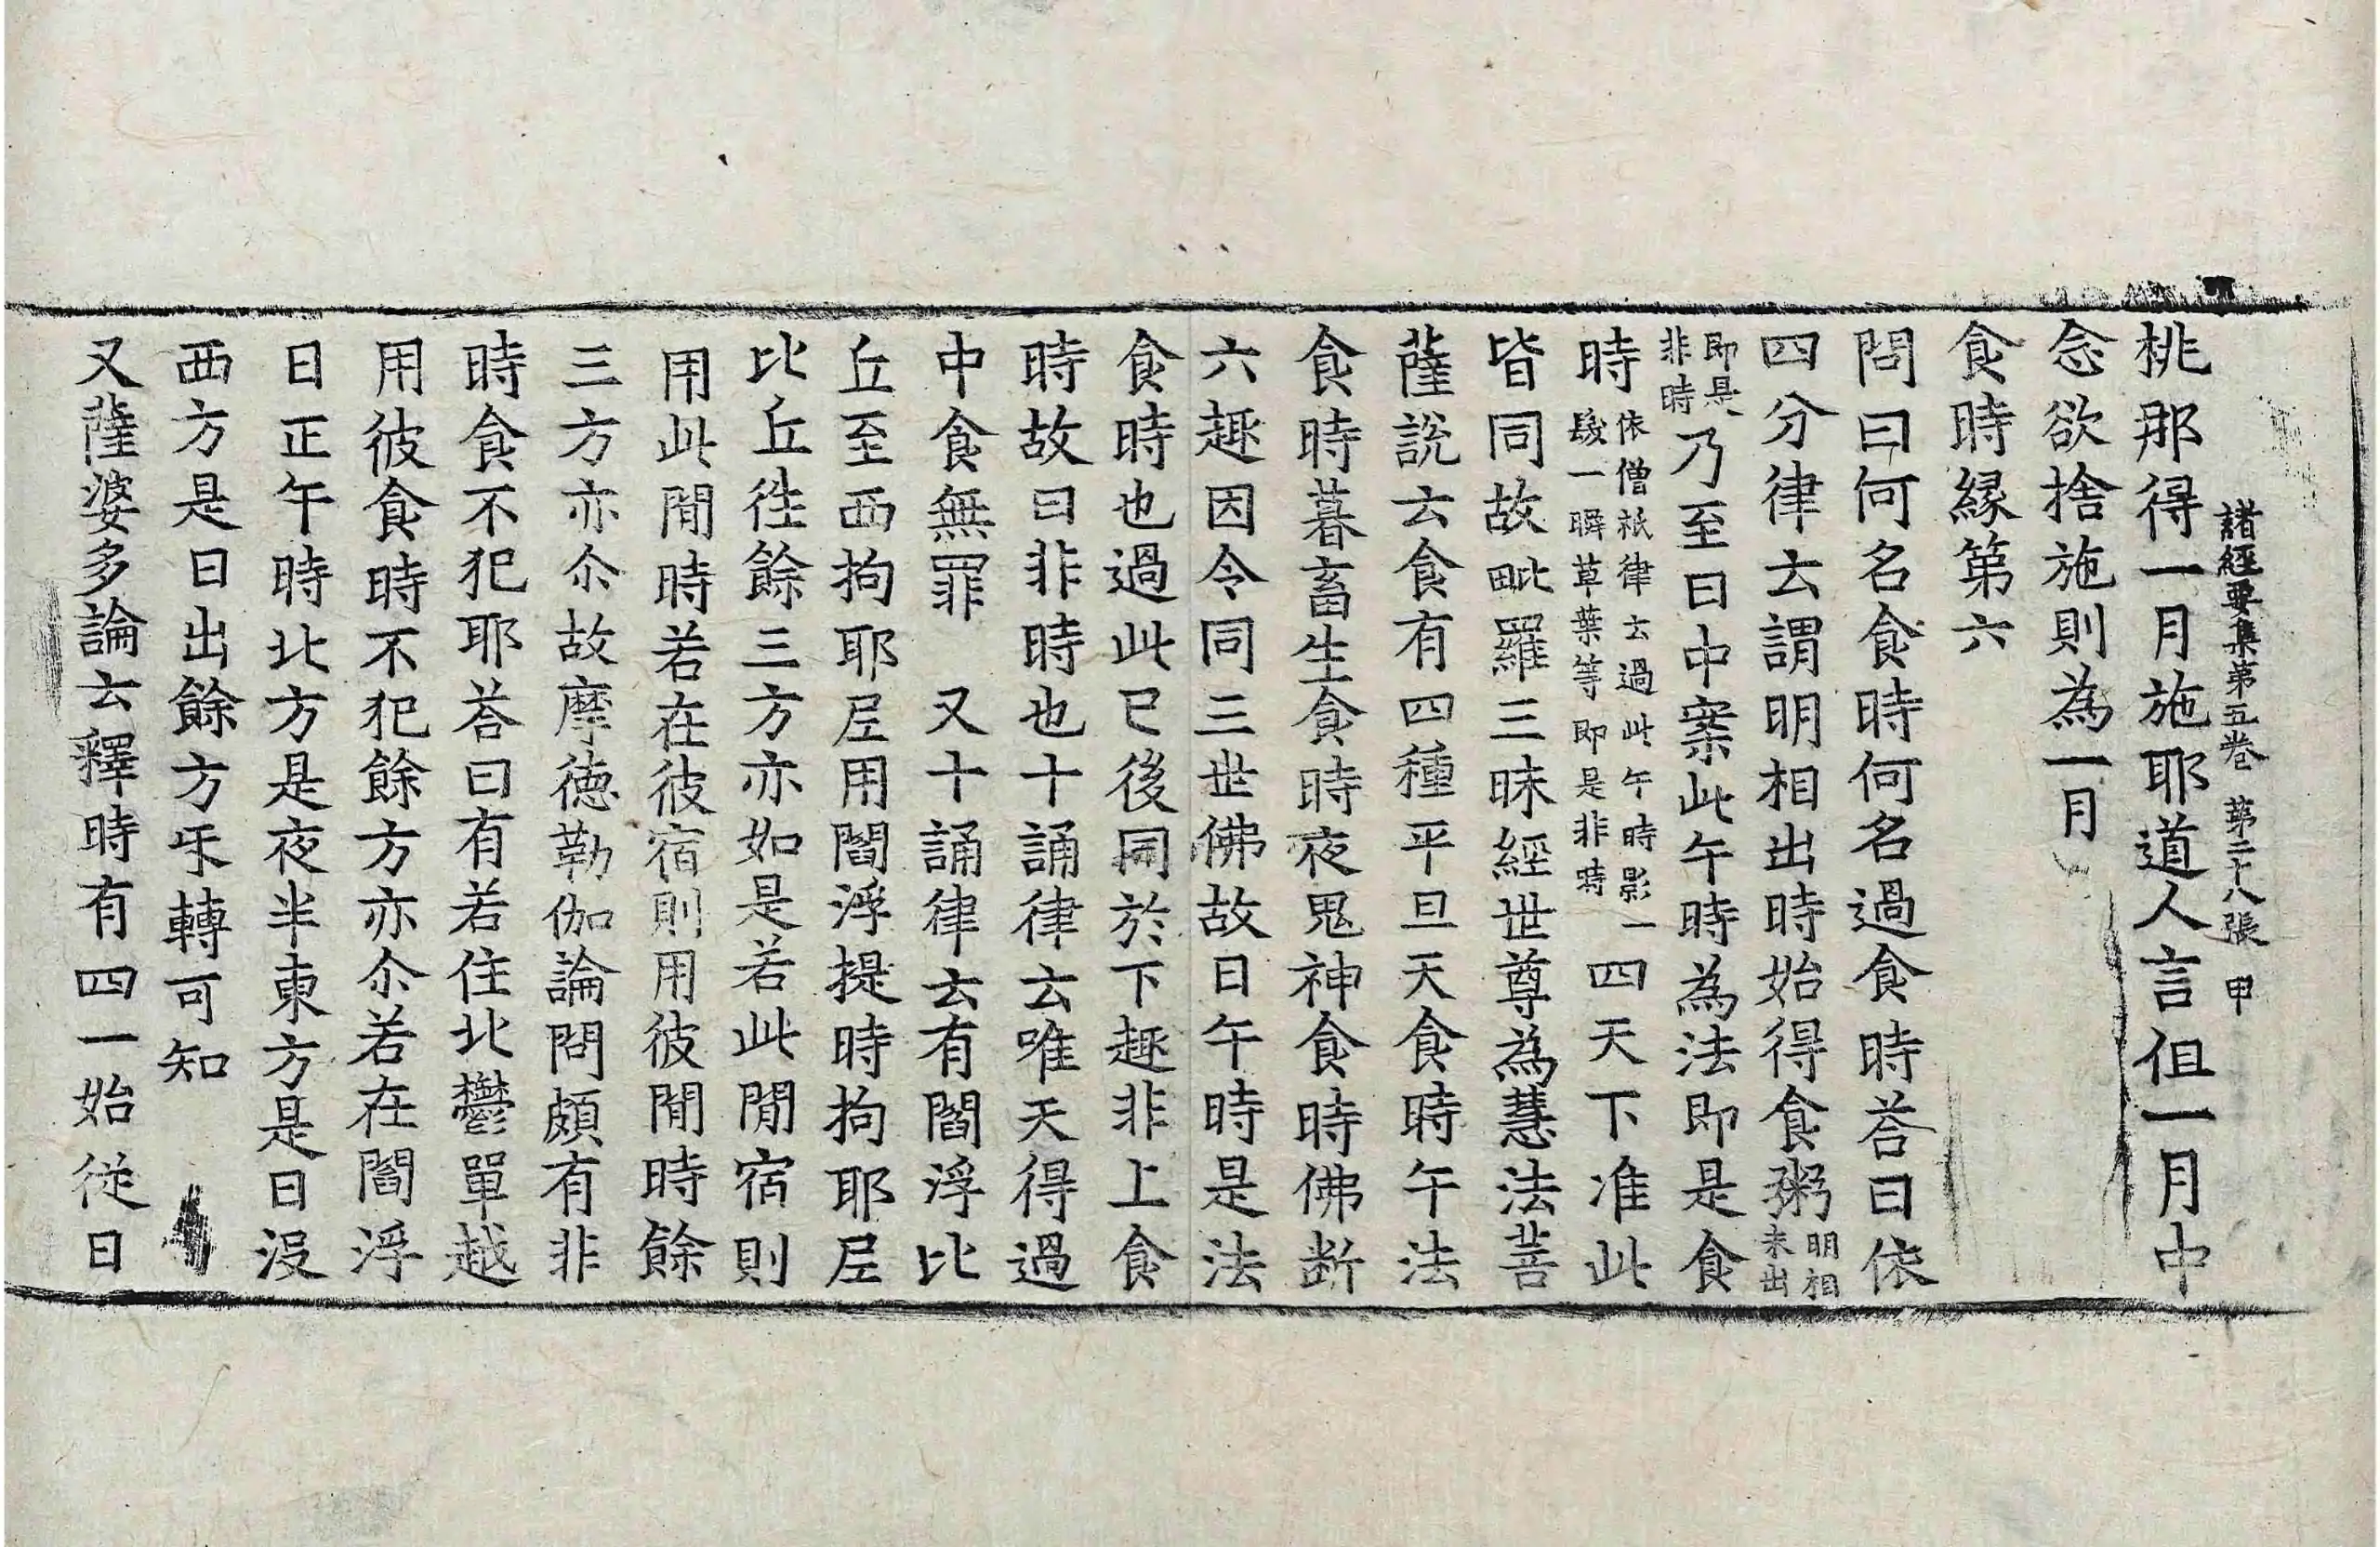 諸經要集第五卷 第二十八張 甲
桃那得一月施耶道人言但一月中
念欲捨施則為一月
食時緣第六
問曰何名食時何名過食時荅曰依
四分律云謂明相出時始得食粥明相未出
即是非時乃至日中案此午時為法即是食
時依僧祇律云過此午時影一𩬊一瞬草葉等即是非時四天下准此
皆同故毗羅三昧經世尊為慧法菩
薩說云食有四種平旦天食時午法
食時暮畜生食時夜鬼神食時佛断
六趣因令同三世佛故日午時是法
食時也過此已後同於下趣非上食
時故曰非時也十誦律云唯天得過
中食無罪 又十誦律云有閻浮比
丘至西拘耶尼用閻浮提時拘耶尼
比丘徃餘三方亦如是若此間宿則
用此間時若在彼宿則用彼間時餘
三方亦尒故摩德勒伽論問頗有非
時食不犯耶荅曰有若住北鬱單越
用彼食時不犯餘方亦尒若在閻浮
日正午時北方是夜半東方是日沒
西方是日出餘方㸦轉可知
又薩婆多論云釋時有四一始從日